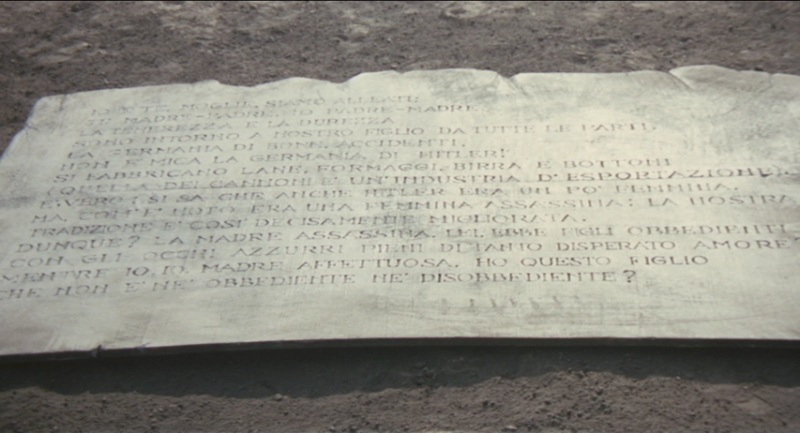 IO E TE, MOGLIE, SIAMO ALLEATI:
TU MADRE-PADRE, IO PADRE-MADRE.
LA TENEREZZA E LA DUREZZA
SONO INTORNO A NOSTRO FIGLIO DA TUTTE LE PARTI.
LA GERMANIA DI BONN, ACCIDENTI,
NON E' MICA LA GERMANIA DI HITLER!
SI FABBRICANO LANE, FORMAGGI, BIRRA E BOTTONI
(QUELLA DEI CANNONI E' UN'INDUSTRIA D'ESPORTAZIONE).
E' VERO: SI SA CHE ANCHE HITLER ERA UN PO' FEMMINA,
MA, COM'E' NOTO, ERA UNA FEMMINA ASSASSINA: LA NOSTRA
TRADIZIONE E' COSI' DECISAMENTE MIGLIORATA.
DUNQUE? LA MADRE ASSASSINA, LEI, EBBE FIGLI OBBEDIENTI
CON GLI OCCHI AZZURRI PIENI DI TANTO DISPERATO AMORE
MENTRE IO, IO, MADRE AFFETTUOSA, HO QUESTO FIGLIO
CHE NON E' NE' OBBEDIENTE NE' DISOBBEDIENTE?